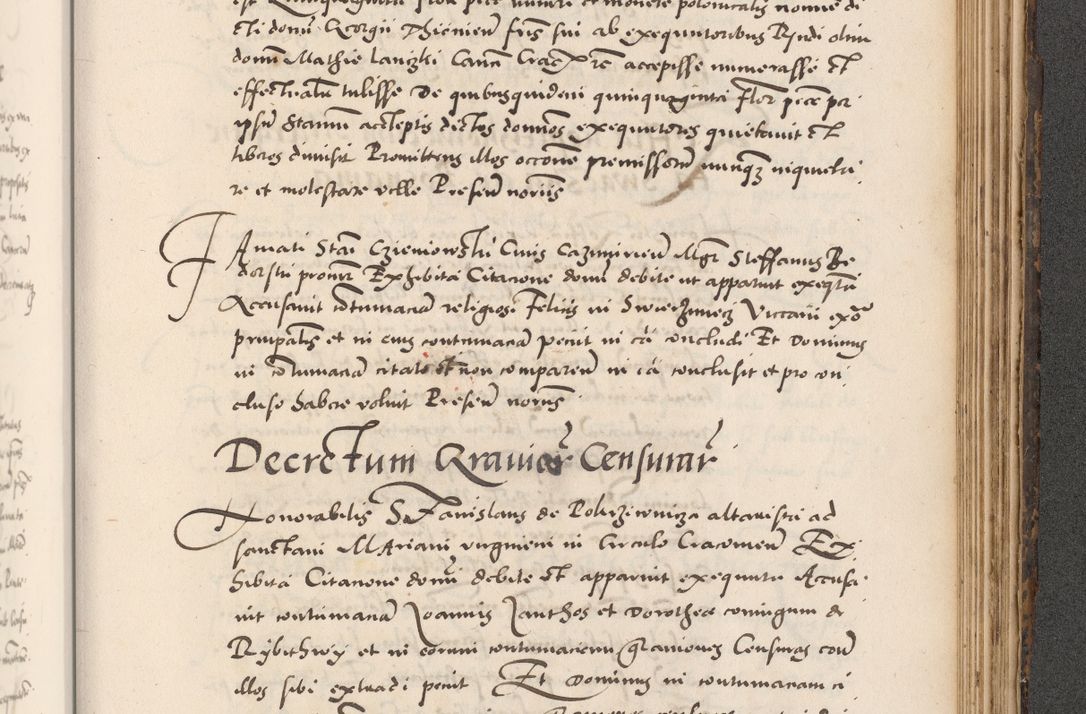 cti domini Georgii Thiemien fris sui ab exequutoribus Bndi olim
domini Mathie Laniczki Canci Crac rem accepisse numerasse et
effectualiter tulisse De quibusquidem quinquaginta flor pece per
ipsum Stanm acceptis dictos dominos exequutores quietavit et
liberos dimisit Promittens illos occone premissorum nunquam inquieta
re et molestare velle Presen noriis
Amati Stani Czieniowski Civis Cazimirien Mgr Steffanus Be
dorski procur Exhibita Citacione domini debite ut apparuit exequta
Accusavit contumaciam religiosi Felicis in Swierziniecz Viccarii
principalis et in eius contumaciam peciit in ca concludi Et Dominus
in contumaciam citati et non comparen in ca conclusit et pro con
cluso habere voluit Presen noriis
Decretum Gravior Censurar
Honorabilis Stanislaus de altarista ad
sanctam Mariam virginem in Circulo Cracovien Ex
hibita Citacione domini debite et apparuit exequuta Accusa
vit contumaciam Joannis Janthos et Dorothea coniugum de
Rybithwy et in eorum contumaciam graviores Censuras con
illos sibi extradi peciit Et Dominus in contumaciam ci